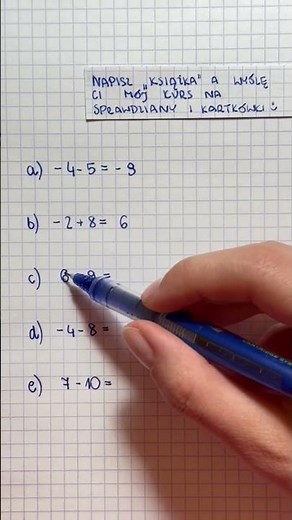 NAPISZ „KSIĄŻKA" A WYŚLĘ
CI MÓJ KURS NA
SPRAWDZIANY I KARTKÓWKI :)
a) -4-5 = -9
b) -2+8 = 6
c)
d) -4-8 =
e) 7-10 =